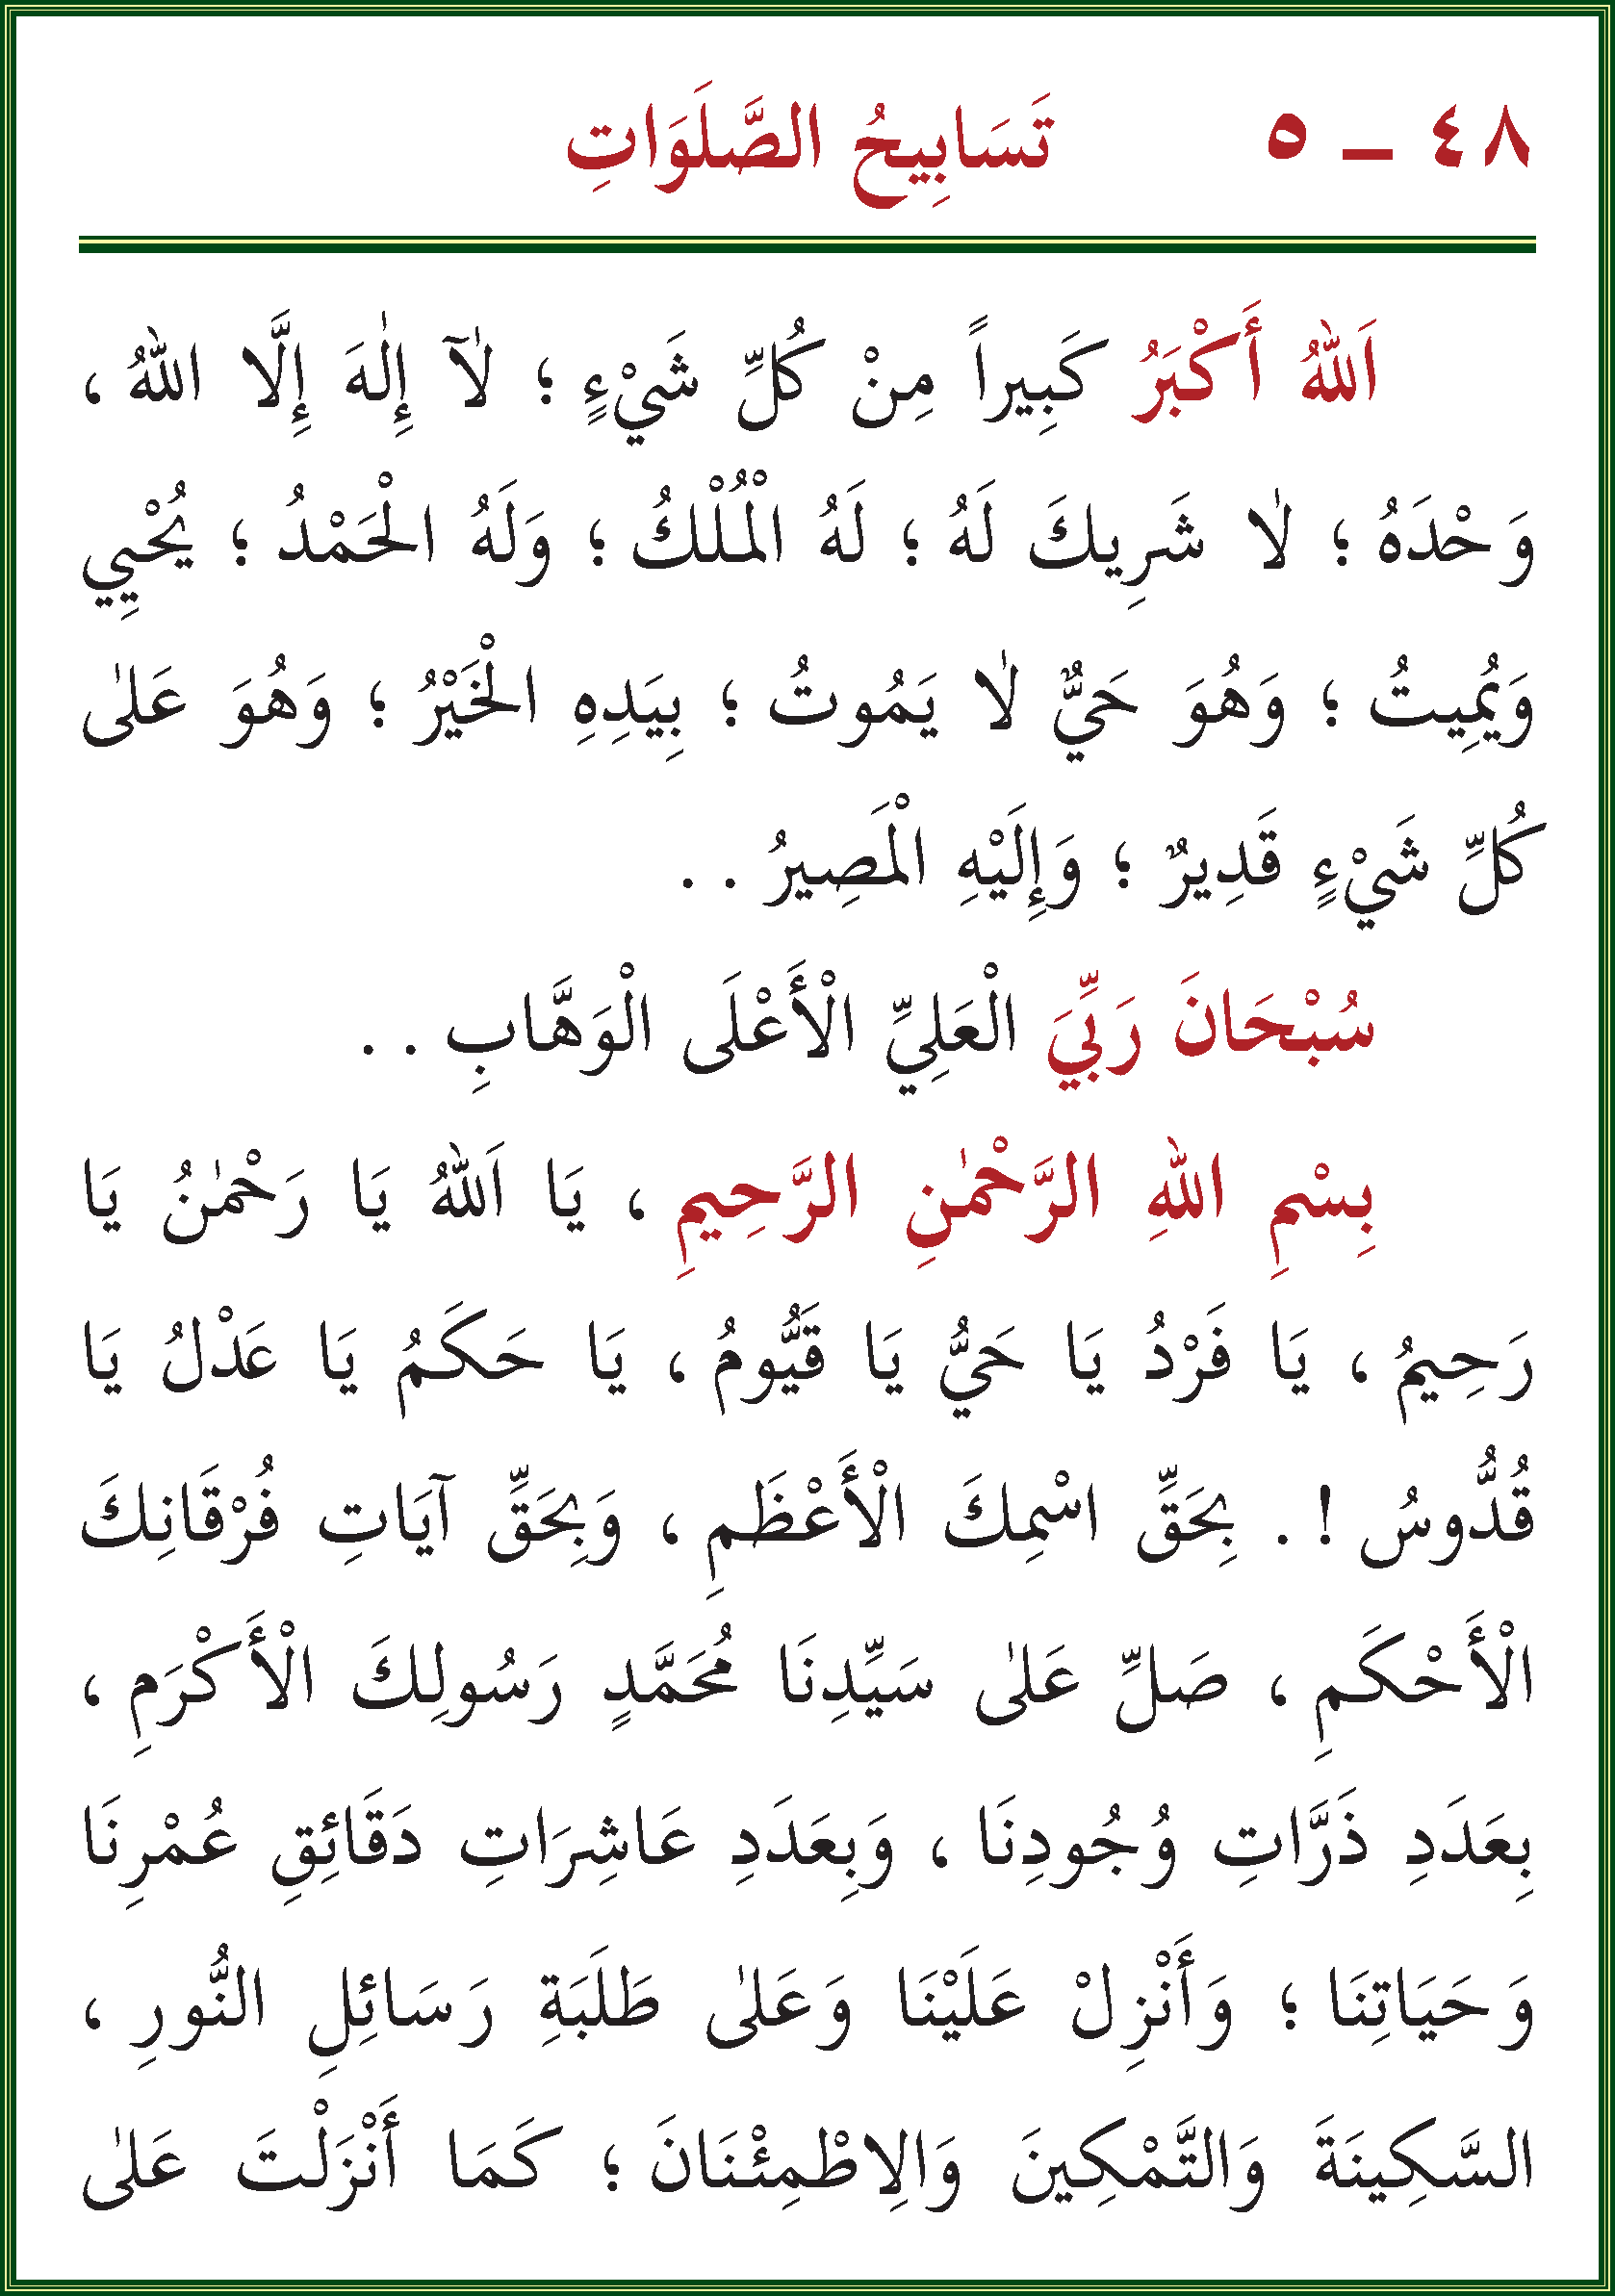 ٤٨ ــ ٥ تَسَابِيحُ الصَّلَوَاتِ
اَللّٰهُ أَكْبَرُ كَبِيراً مِنْ كُلِّ شَيْءٍ ؛ لٰآ إِلٰهَ إِلَّا اللّٰهُ ،
وَحْدَهُ ؛ لٰا شَرِيكَ لَهُ ؛ لَهُ الْمُلْكُ ؛ وَلَهُ الْحَمْدُ ؛ يُحْيِي
وَيُمِيتُ ؛ وَهُوَ حَيٌّ لٰا يَمُوتُ ؛ بِيَدِهِ الْخَيْرُ ؛ وَهُوَ عَلٰى
كُلِّ شَيْءٍ قَدِيرٌ ؛ وَإِلَيْهِ الْمَصِيرُ . .
سُبْحَانَ رَبِّيَ الْعَلِيِّ الْأَعْلَى الْوَهَّابِ . .
بِسْمِ اللّٰهِ الرَّحْمٰنِ الرَّحِيمِ ، يَا اَللّٰهُ يَا رَحْمٰنُ يَا
رَحِيمُ ، يَا فَرْدُ يَا حَيُّ يَا قَيُّومُ ، يَا حَكَمُ يَا عَدْلُ يَا
قُدُّوسُ ! . بِحَقِّ اسْمِكَ الْأَعْظَمِ ، وَبِحَقِّ آيَاتِ فُرْقَانِكَ
الْأَحْكَمِ ، صَلِّ عَلٰى سَيِّدِنَا مُحَمَّدٍ رَسُولِكَ الْأَكْرَمِ ،
بِعَدَدِ ذَرَّاتِ وُجُودِنَا ، وَبِعَدَدِ عَاشِرَاتِ دَقَائِقِ عُمْرِنَا
وَحَيَاتِنَا ؛ وَأَنْزِلْ عَلَيْنَا وَعَلٰى طَلَبَةِ رَسَائِلِ النُّورِ ،
السَّكِينَةَ وَالتَّمْكِينَ وَالِاطْمِئْنَانَ ؛ كَمَا أَنْزَلْتَ عَلٰى